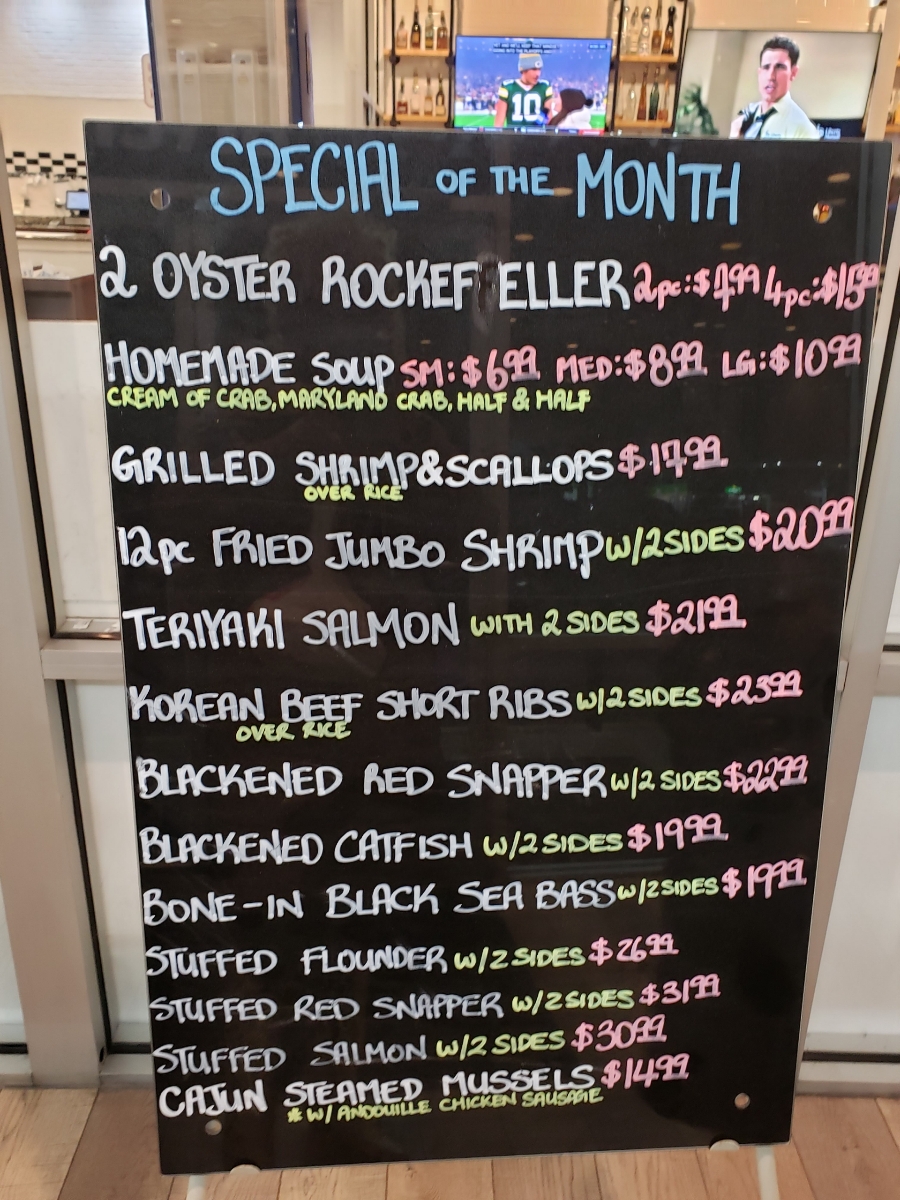 SPECIAL OF THE MONTH
2 OYSTER ROCKEFELLER 2pc: 4pc:
HOMEMADE SOUP SM: $6.99 MED: $8.99 LG: $10.99
CREAM OF CRAB, MARYLAND CRAB, HALF & HALF
GRILLED SHRIMP & SCALLOPS $17.99
OVER RICE
12pc FRIED JUMBO SHRIMP W/2 SIDES $20.99
TERIYAKI SALMON WITH 2 SIDES $21.99
KOREAN BEEF SHORT RIBS W/2 SIDES $23.99
OVER RICE
BLACKENED RED SNAPPER W/2 SIDES $22.99
BLACKENED CATFISH W/2 SIDES $19.99
BONE-IN BLACK SEA BASS W/2 SIDES $19.99
STUFFED FLOUNDER W/2 SIDES $26.99
STUFFED RED SNAPPER W/2 SIDES $31.99
STUFFED SALMON W/2 SIDES $30.99
CAJUN STEAMED MUSSELS $14.99
* W/ ANDOUILLE CHICKEN SAUSAGE
10